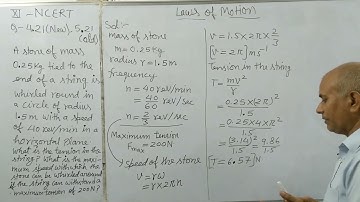 Laws of Motion
XI - NCERT
Q-4.21(New), 5.21
(old)
A stone of mass
0.25kg tied to the
end of a string is
whirled round in
a circle of radius
1.5m with a speed
of 40 rev/min in a
horizontal plane
what is the tension in the
string? What is the maxi-
mum speed with which the
stone can be whirled around
if the string can withstand a
maximum tension of 200N?
Sol:-
mass of stone
m = 0.25kg
radius r = 1.5m
frequency
n = 40 rev/min
= 40/60 rev/sec
n = 2/3 rev/sec
Maximum tension
Fmax = 200N
Speed of the stone
V = rω
= r x 2πn
V = 1.5 x 2π x 2/3
V = 2π ms⁻¹
Tension in the string
T = mv²/r
= 0.25 x (2π)²/1.5
= 0.25 x 4 x π²/1.5
= (3.14)²/1.5 = 9.86/1.5
T = 6.57 N